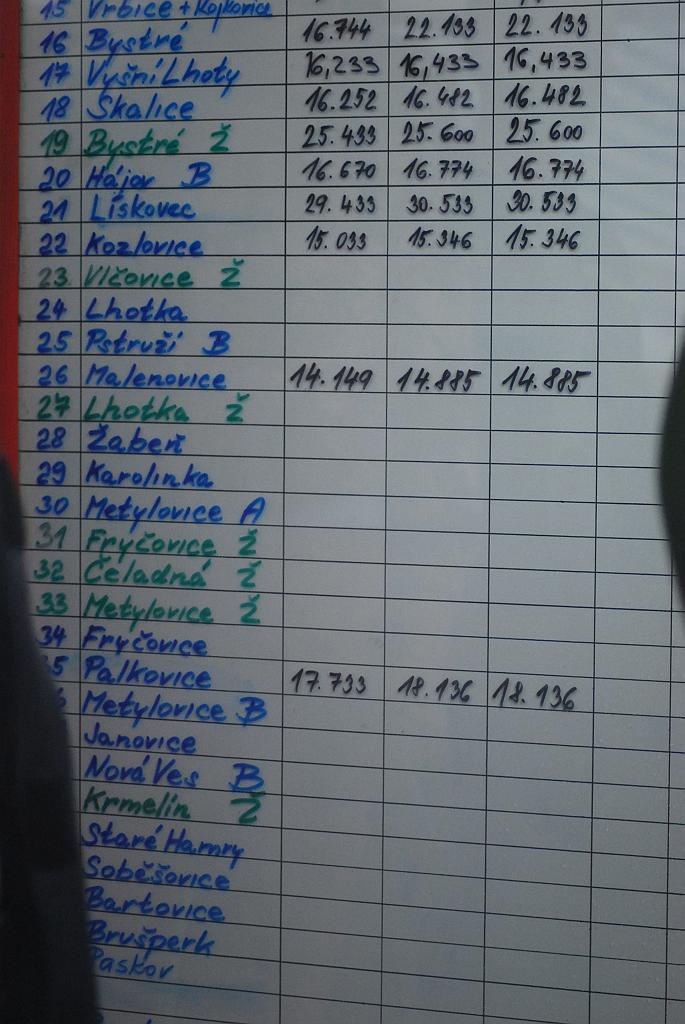 15 Vrbice + Kojkovice
16 Bystré 16.744 22.133 22.133
17 Vyšní Lhoty 16,233 16,433 16,433
18 Skalice 16.252 16.482 16.482
19 Bystré Ž 25.433 25.600 25.600
20 Hájov B 16.670 16.774 16.774
21 Lískovec 29.433 30.533 30.533
22 Kozlovice 15.033 15.346 15.346
23 Vlčovice Ž
24 Lhotka
25 Pstruží B
26 Malenovice 14.149 14.885 14.885
27 Lhotka Ž
28 Žabeň
29 Karolinka
30 Metylovice A
31 Fryčovice Ž
32 Čeladná Ž
33 Metylovice Ž
34 Fryčovice
5 Palkovice 17.733 18.136 18.136
6 Metylovice B
Janovice
Nová Ves B
Krmelín Ž
Staré Hamry
Soběšovice
Bartovice
Brušperk
Paskov